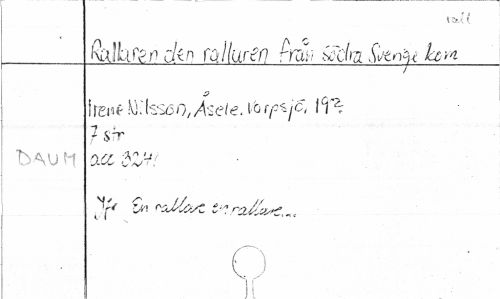 rall
Rallaren den ralluren från södra Sverge kom
Irene Nilsson, Åsele. Vorpsjö. 19?
7 str
DAUM acc 324!
Jfr En rallare en rallare...